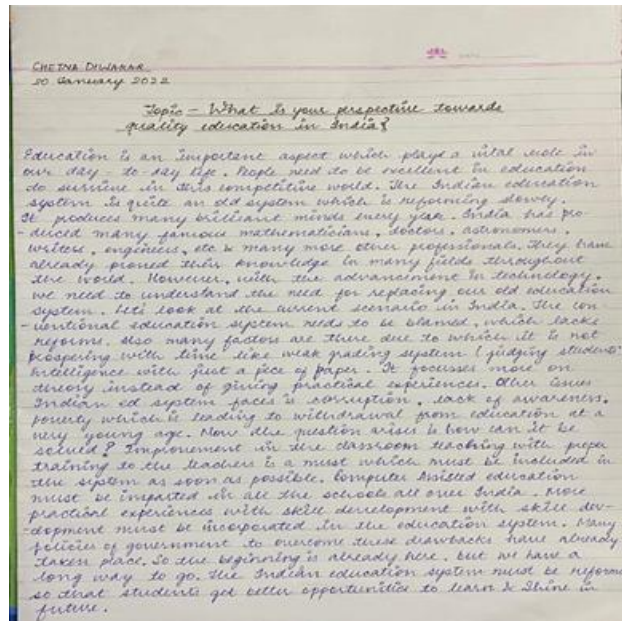 CHETNA DIWAKAR
20 January 2022
Topic - What is your perspective towards
quality education in India?
Education is an important aspect which plays a vital role in
our day - to day life. People need to be excellent in education
do survive in this competitive world. The Indian education
system is quite an old system which is reforming slowly.
It produces many brilliant minds every year. India has pro
- duced many famous mathematicians, doctors, astronomers,
writers, engineers, etc & many more other professionals. They have
already proved their knowledge in many fields throughout
the world. However, with the advancement in technology,
we need to understand the need for replacing our old education
system. Let's look at the current scenario in India. The con
- ventional education system needs to be blamed, which lacks
reforms. Also many factors are there due to which it is not
prospering with time like weak grading system / judging students'
intelligence with just a piece of paper. It focusses more on
theory instead of giving practical experiences. Other issues
Indian ed system faces is corruption, lack of awareness,
poverty which is leading to withdrawal from education at a
very young age. Now the question arises is how can it be
solved? Improvement in the classroom teaching with proper
training to the teachers is a must which must be included in
the system as soon as possible. Computer Assisted education
must be imparted in all the schools all over India. More
practical experiences with skill development with skill dev-
-elopment must be incorporated in the education system. Many
policies of government to overcome these drawbacks have already
taken place. So the beginning is already here, but we have a
long way to go. The Indian education system must be reform
so that students get better opportunities to learn & Shine in
future.